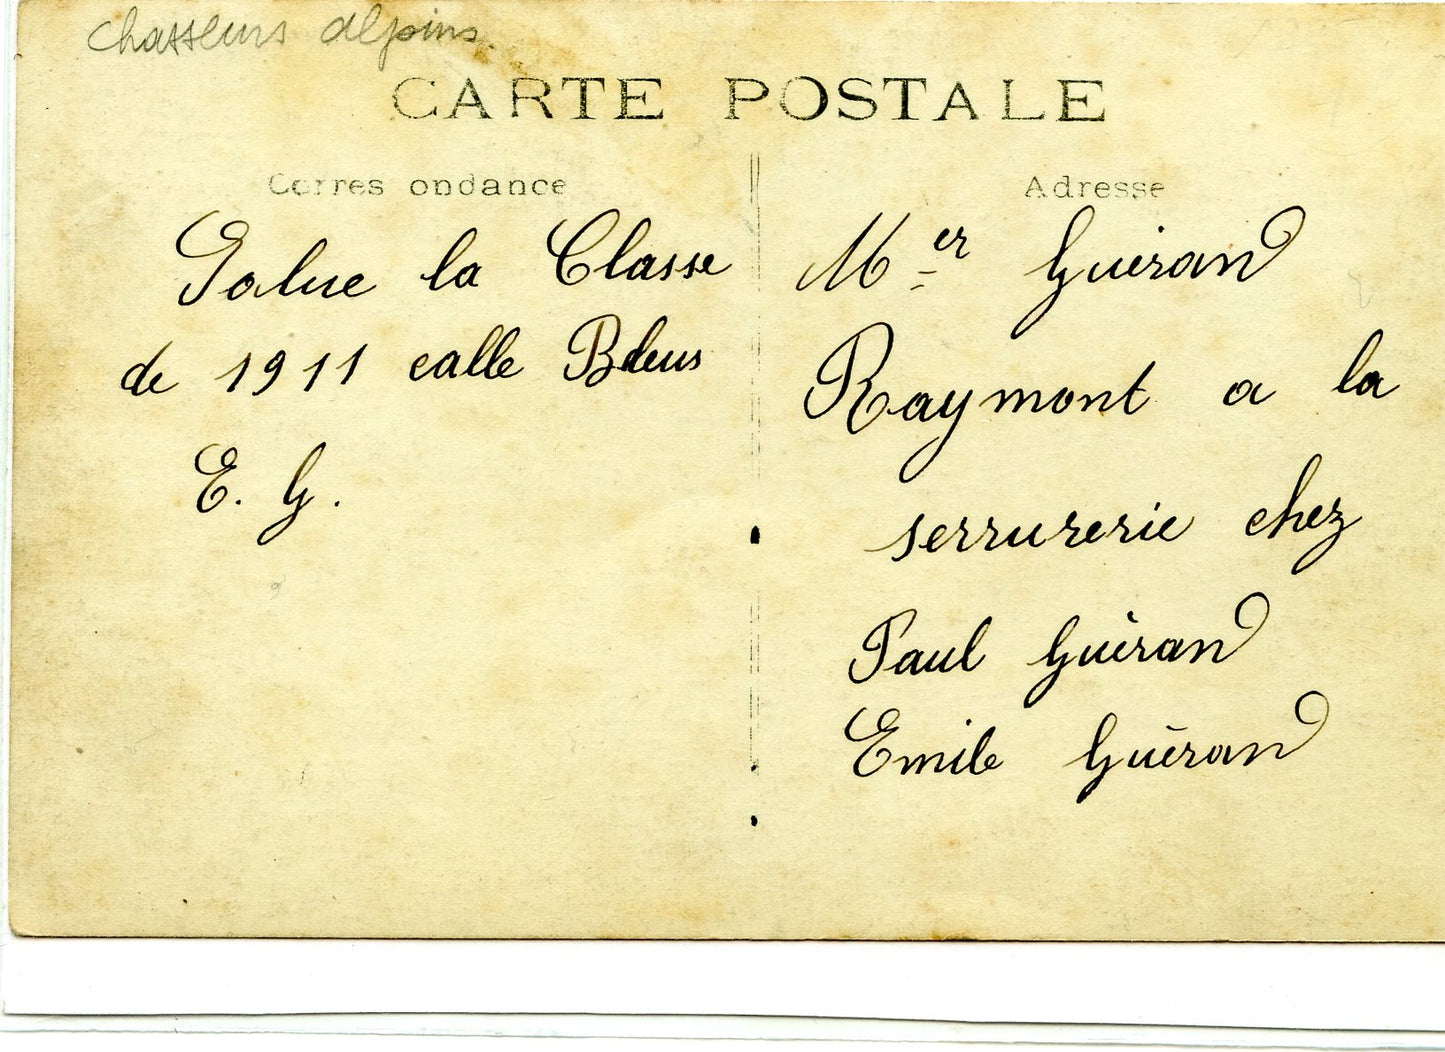 chasseurs alpins.
CARTE POSTALE
Corres ondance
Adresse
Salue la Classe
de 1911 calle Bleus
E. G.
Mer Guérand
Raymont a la
serrurerie chez
Paul Guérand
Emile Guérand